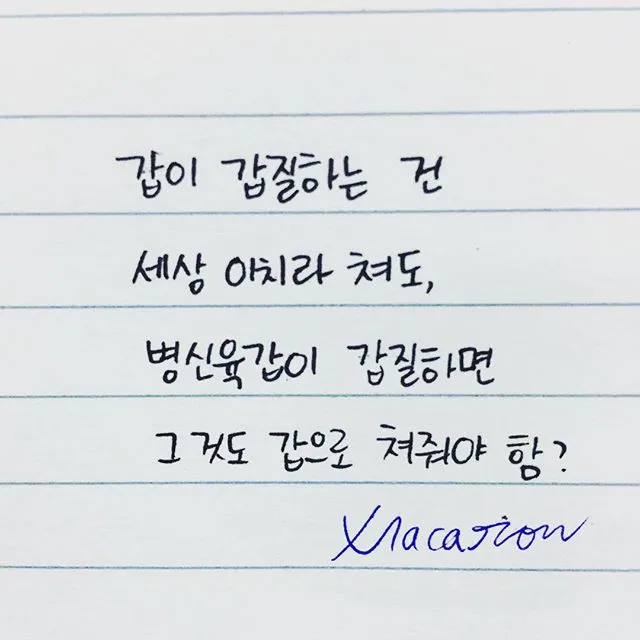 갑이 갑질하는 건
세상 이치라 쳐도,
병신육갑이 갑질하면
그것도 갑으로 쳐줘야 함?